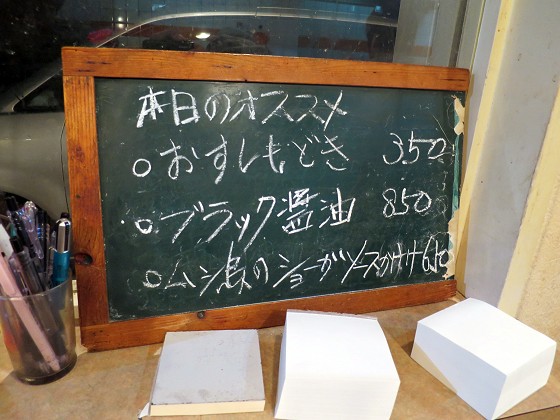 本日のオススメ
○おすしもどき 350
○ブラック醤油 850
○ムシ鳥のショーガソースかけ 650